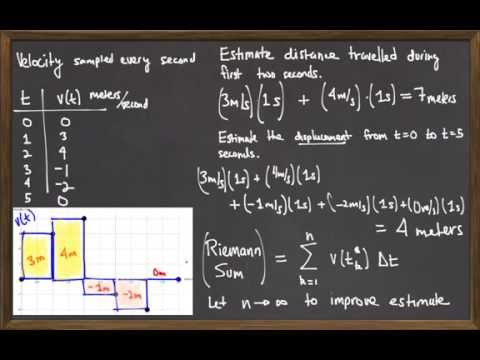 Velocity sampled every second
t v(t) meters/second
0 0
1 3
2 4
3 -1
4 -2
5 0
v(t)
3m 4m -1m -2m 0m
Estimate distance travelled during
first two seconds.
(3m/s)(1s) + (4m/s)·(1s) = 7 meters
Estimate the displacement from t=0 to t=5
seconds.
(3m/s)(1s) + (4m/s)(1s)
+ (-1m/s)(1s) + (-2m/s)(1s) + (0m/s)(1s)
= 4 meters
(Riemann Sum) = ∑ₖ₌₁ⁿ v(tₖ*) Δt
Let n → ∞ to improve estimate